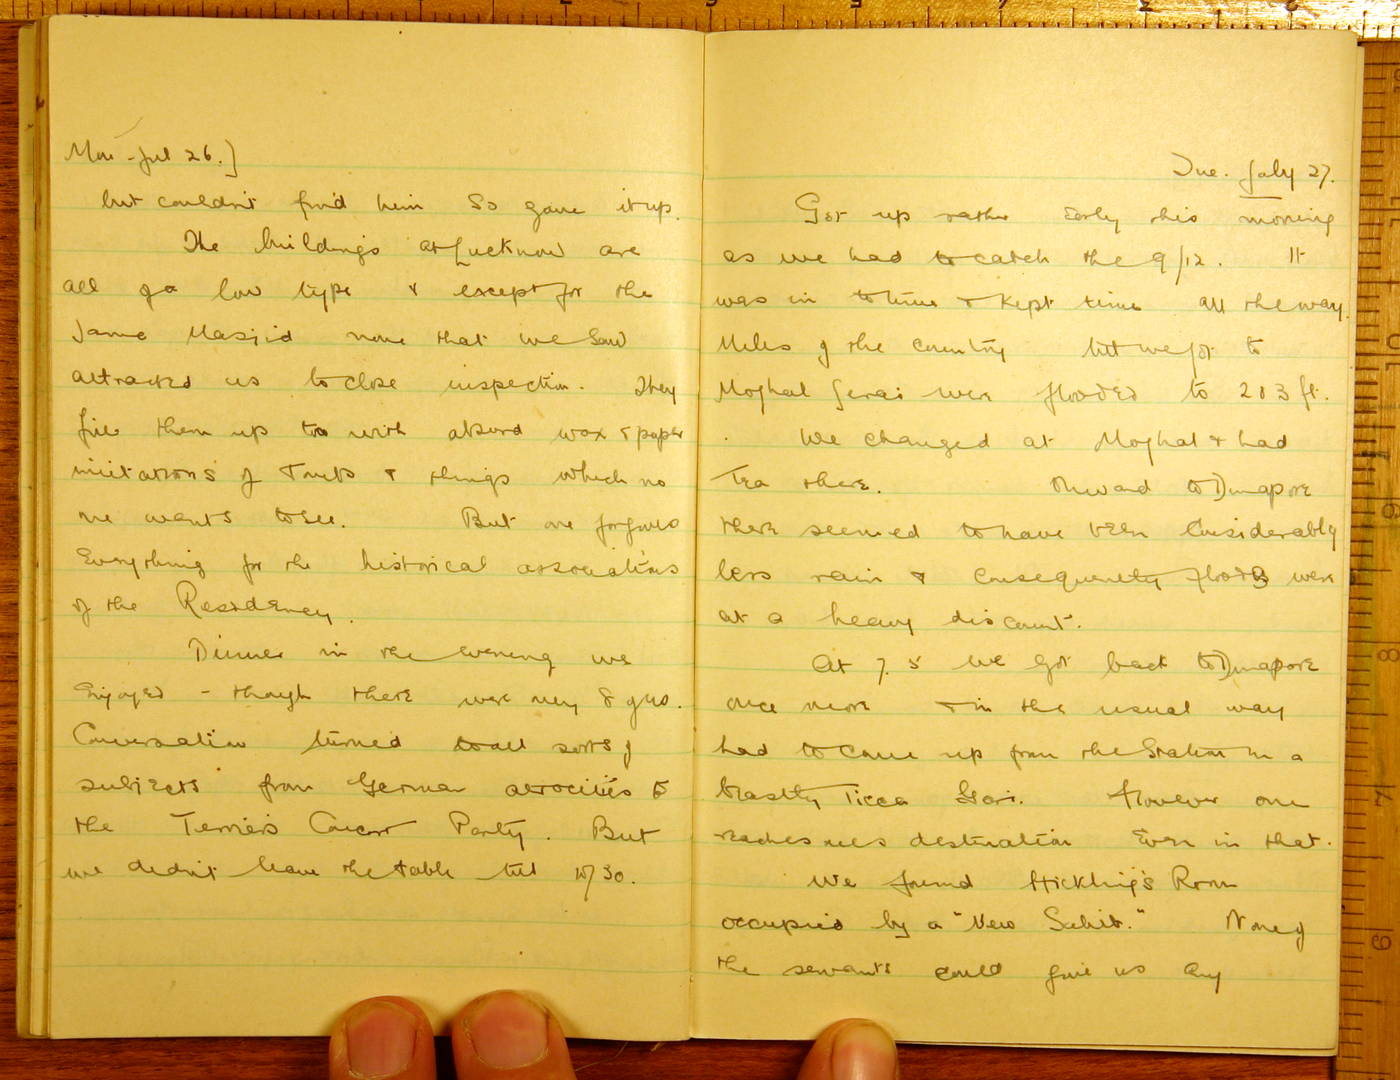 Mon - Jul 26.]
but couldn't find him so gave it up.
The buildings at Lucknow are
all of a low type & except for the
Jama Masjid none that we saw
attracted us to close inspection. They
fill them up too with absurd wax & paper
imitations of fruits & things which no
one wants to see. But one forgives
Everything for the historical associations
of the Residency.
Dinner in the evening we
Enjoyed - though there were only 8 of us.
Conversation turned to all sorts of
subjects from German atrocities to
the Terriers Concert Party. But
we didn't leave the table till 10/30.
Tue. July 27.
Got up rather Early this morning
as we had to catch the 9/12. It
was in to time & kept time all the way.
Miles of the country till we got to
Moghal Serai were flooded to 2 or 3 ft.
We changed at Moghal & had
Tea there. Onward to Dinapore
there seemed to have been Considerably
less rain & consequently floods were
at a heavy discount.
At 7.5 we got back to Dinapore
once more & in the usual way
had to come up from the Station in a
beastly Ticca Gari. However one
reaches one's destination Even in that.
We found Hickling's Room
occupied by a "New Sahib." None of
the servants could give us any